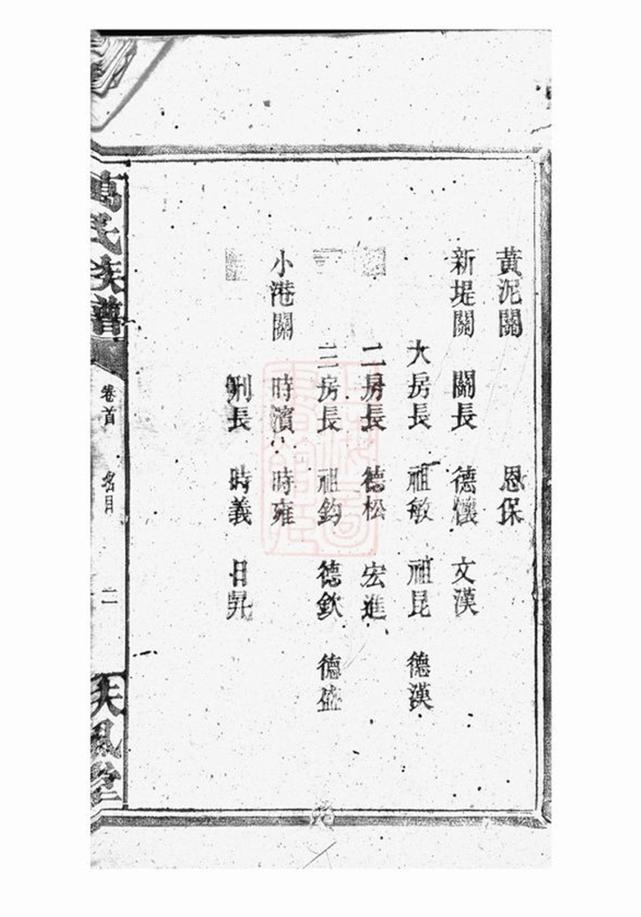 黃泥關 恩保
新堤關 關長 德懷 文漢
大房長 祖敏 祖昆 德漢
二房長 德松 宏進
三房長 祖鈞 德欽 德盛
小港關 時濱 時雍
刑長 時義 日昇
氏族譜
卷首 名目 二